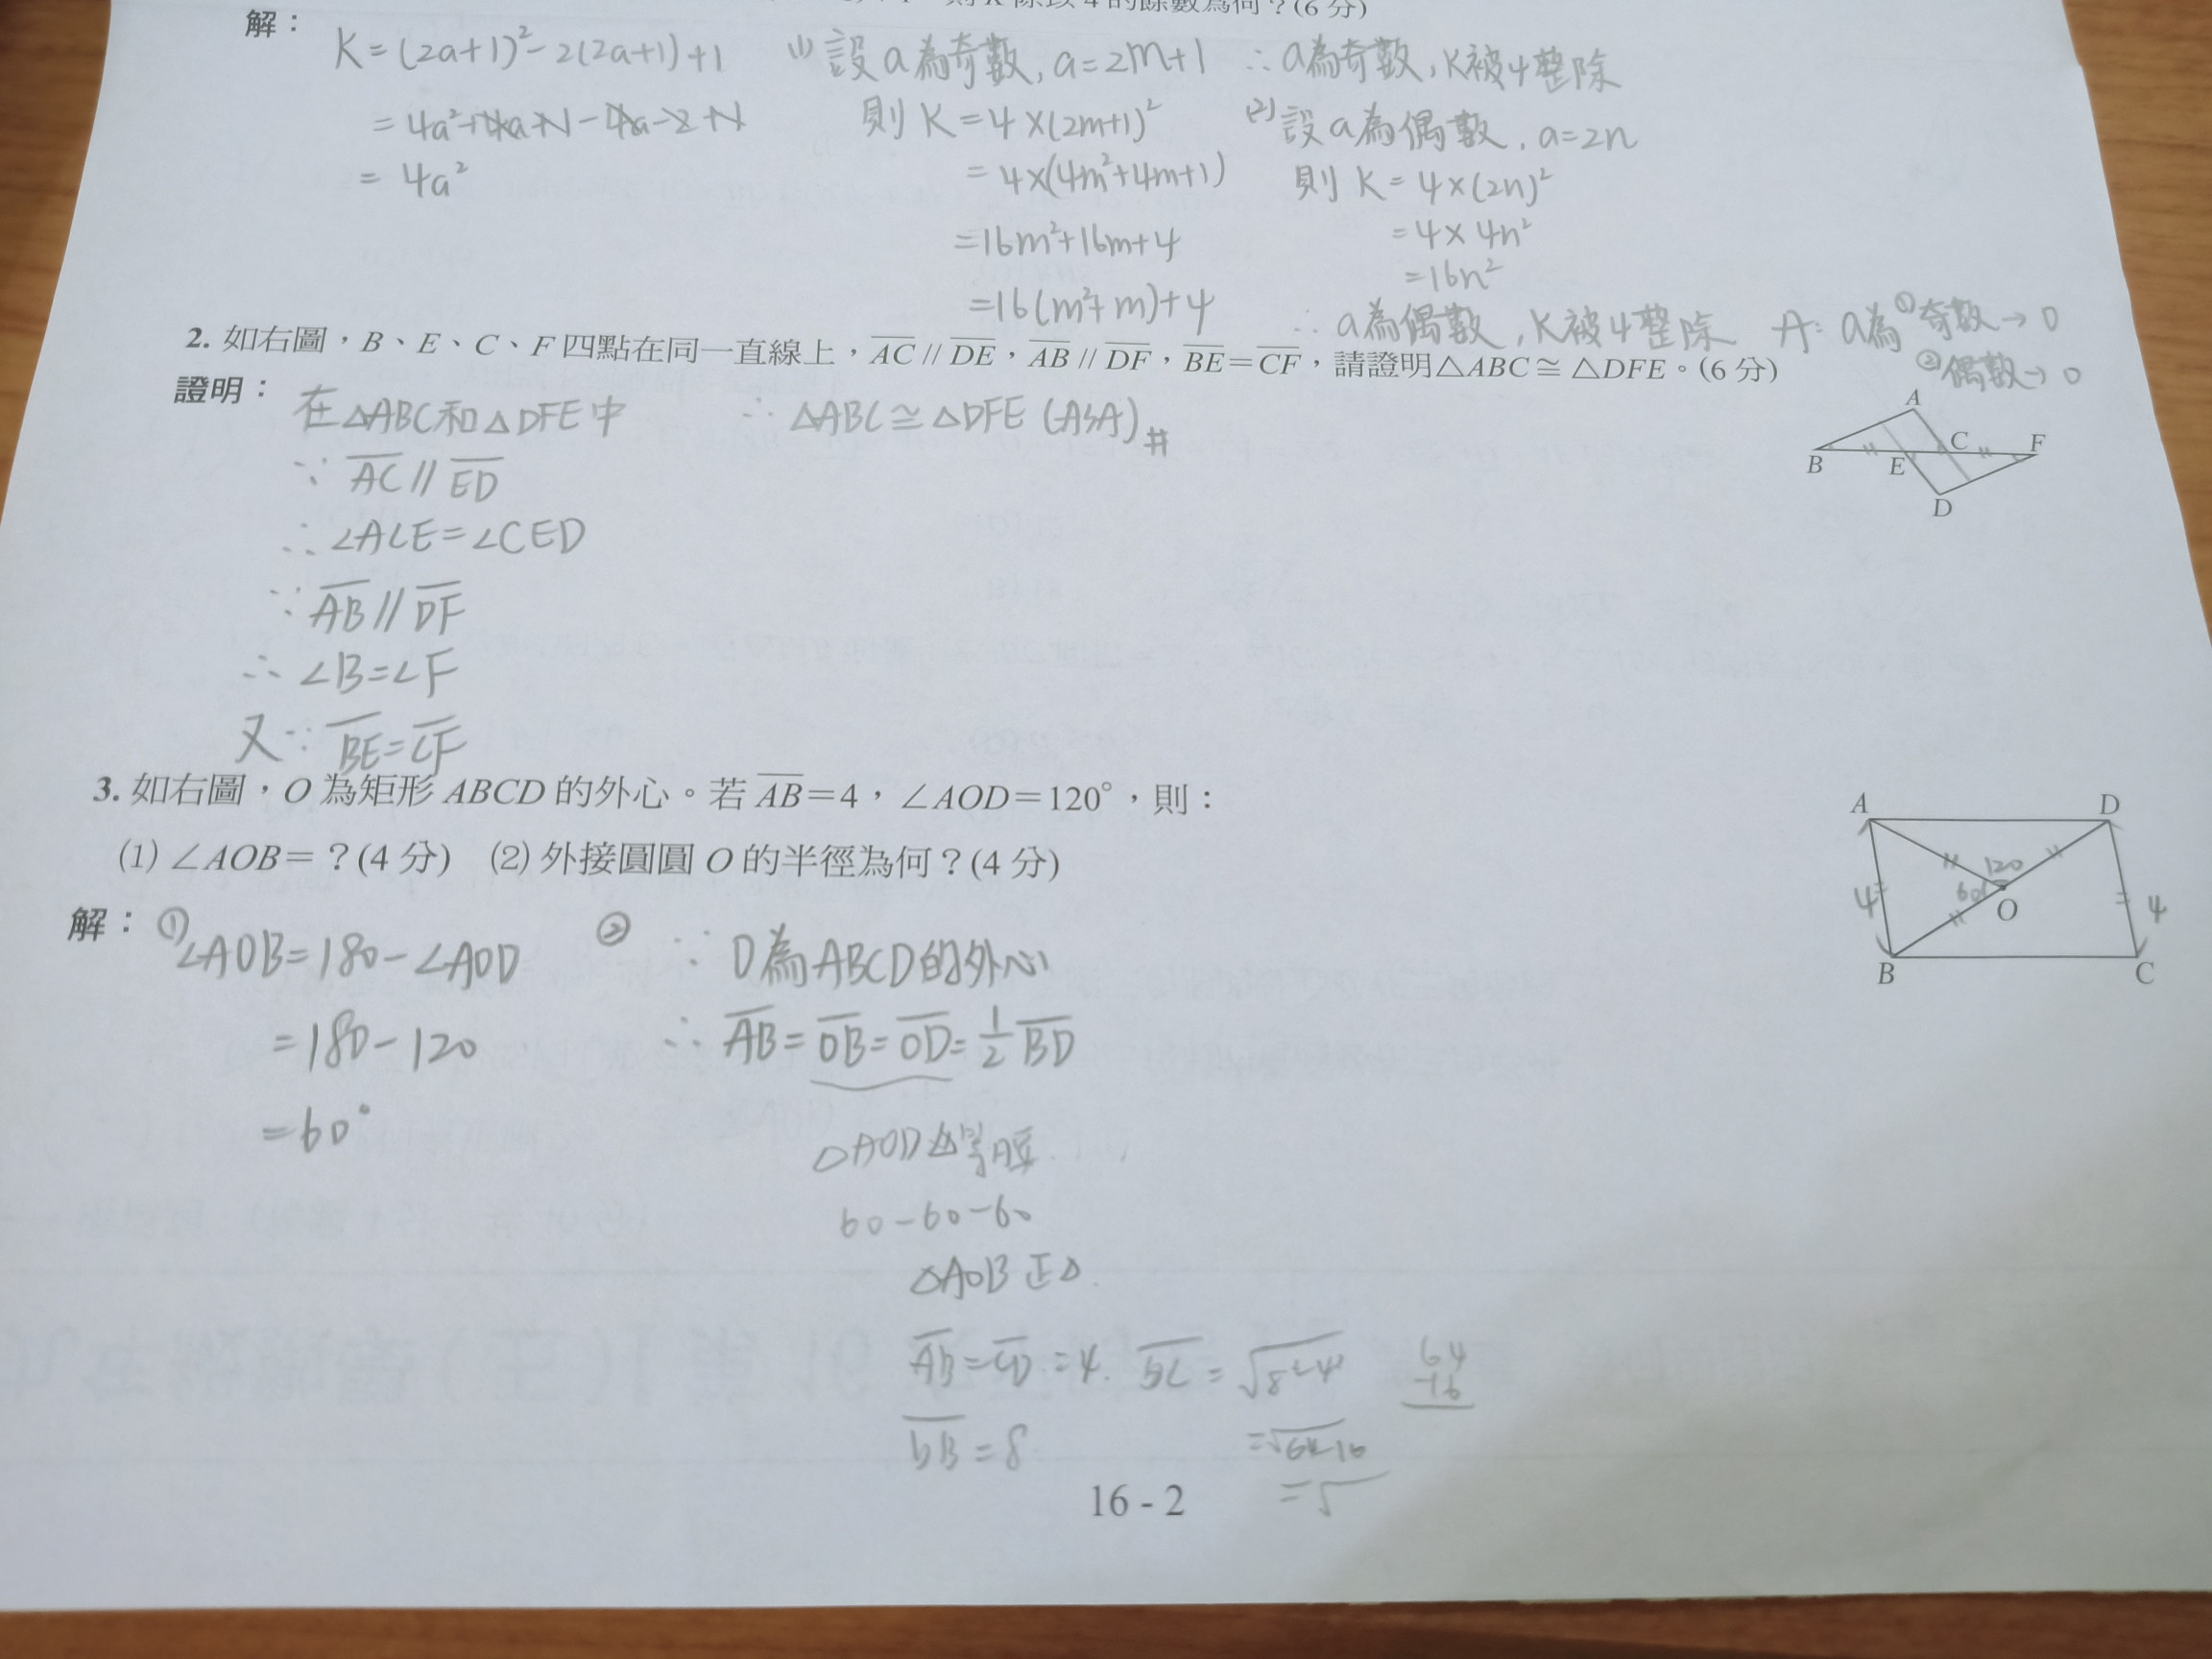 則 K 除以 4 的餘數為何？(6 分)
解：
K=(2a+1)²-2(2a+1)+1
=4a²+4a+1-4a-2+1
=4a²
(1) 設a為奇數, a=2m+1
則 K=4×(2m+1)²
=4×(4m²+4m+1)
=16m²+16m+4
=16(m²+m)+4
∴a為奇數, K被4整除
(2) 設a為偶數, a=2n
則 K=4×(2n)²
=4×4n²
=16n²
∴a為偶數, K被4整除
A: a為①奇數→0
②偶數→0
2. 如右圖，B、E、C、F 四點在同一直線上，AC // DE，AB // DF，BE=CF，請證明△ABC≅△DFE。(6 分)
證明：
在△ABC和△DFE中
∵ AC // ED
∴ ∠ACE=∠CED
∵ AB // DF
∴ ∠B=∠F
又∵ BE=CF
∴ △ABC≅△DFE (ASA)#
A
B
E
C
F
D
3. 如右圖，O 為矩形 ABCD 的外心。若 AB=4，∠AOD=120°，則：
(1) ∠AOB=？(4 分) (2) 外接圓圓 O 的半徑為何？(4 分)
解：
① ∠AOB=180-∠AOD
=180-120
=60°
② ∵ O為ABCD的外心
∴ AB=OB=OD=1/2 BD
△AOD 等腰
60-60-60
△AOB 正△
AB=CD=4. BC=√8²-4²
=√64-16
=√
64
-16
=8
A
D
4
120
60
O
4
B
C
16 - 2